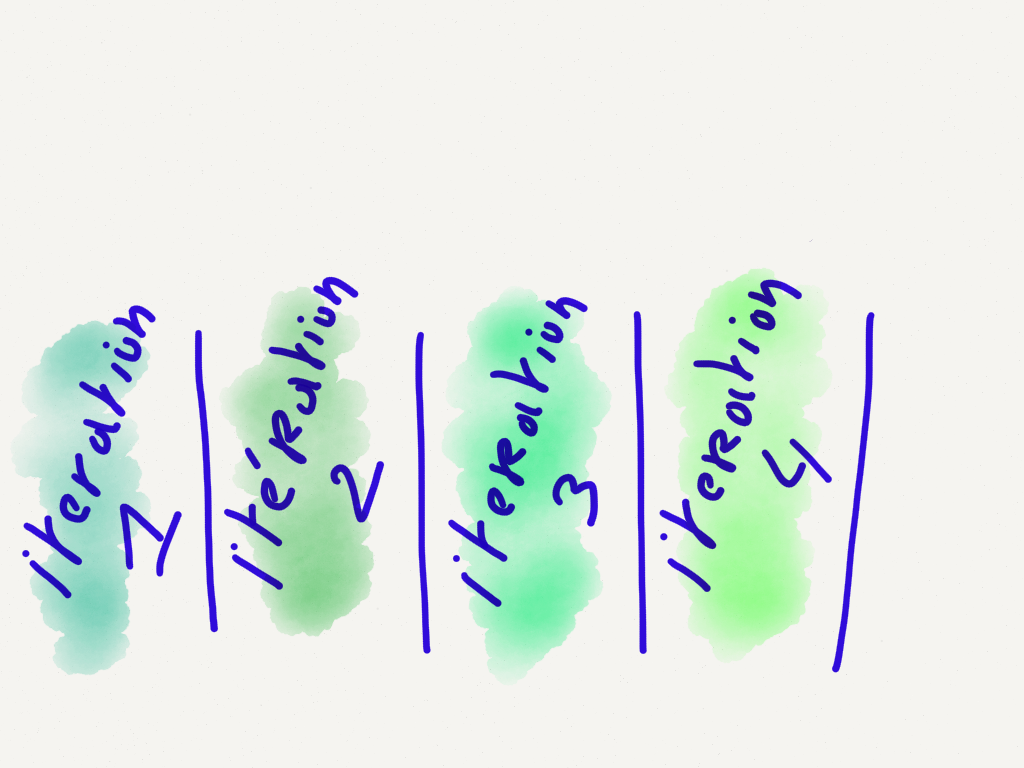 iteration
1
itération
2
iteration
3
iteration
4